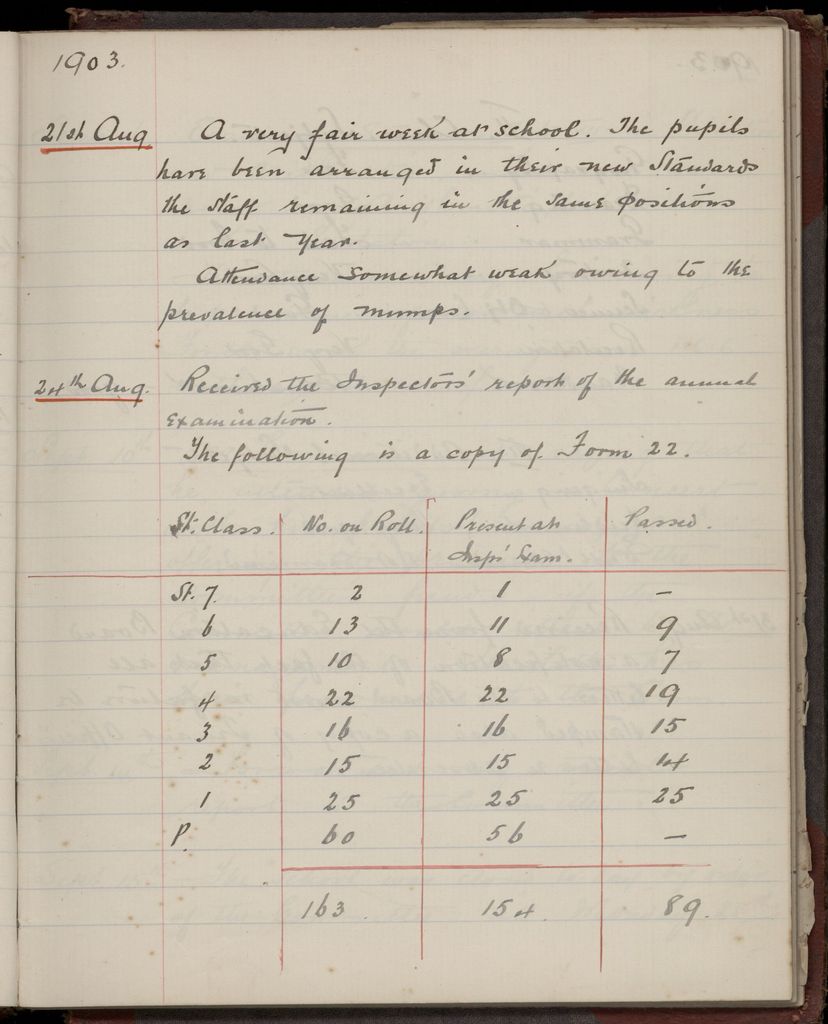 1903.
21st Aug A very fair week at school. The pupils
have been arranged in their new Standards
the staff remaining in the same positions
as last year.
Attendance somewhat weak owing to the
prevalence of mumps.
24th Aug. Received the Inspectors' report of the annual
examination.
The following is a copy of Form 22.
St. Class. No. on Roll. Present at Passed.
Insps' Exam.
St. 7. 2 1 —
6 13 11 9
5 10 8 7
4 22 22 19
3 16 16 15
2 15 15 14
1 25 25 25
P. 60 56 —
163 154 89.